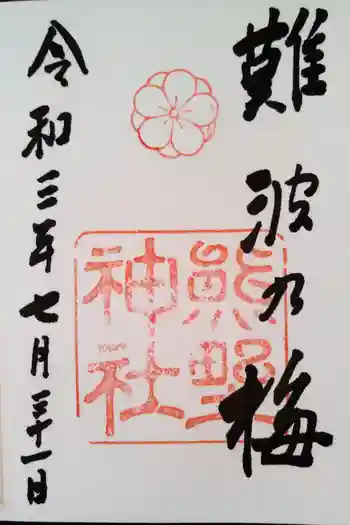 難波乃梅
熊野
神社
令和三年七月三十一日